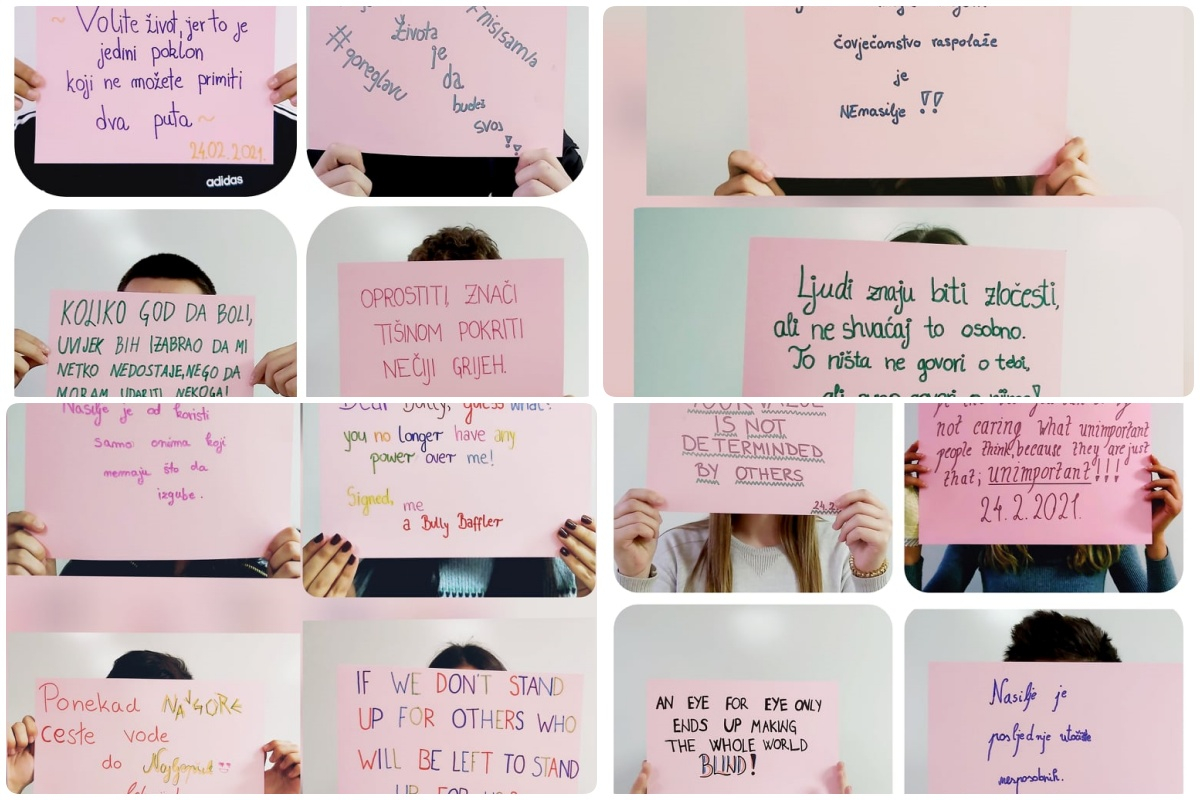 ~ Volite život, jer to je
jedini poklon
koji ne možete primiti
dva puta ~
24.02.2021.
adidas
#nisisam/a
života
je
da
budeš
svoj!!
#goreglavu
čovječanstvo raspolaže
je
NEnasilje !!
KOLIKO GOD DA BOLI,
UVIJEK BIH IZABRAO DA MI
NETKO NEDOSTAJE, NEGO DA
MORAM UDARITI NEKOGA!
OPROSTITI, ZNAČI
TIŠINOM POKRITI
NEČIJI GRIJEH.
Ljudi znaju biti zločesti,
ali ne shvaćaj to osobno.
To ništa ne govori o tebi,
ali puno govori o njima!
Nasilje je od koristi
samo onima koji
nemaju što da
izgube.
Dear Bully, guess what?
you no longer have any
power over me!
Signed, me
a Bully Baffler
YOUR VALUE
IS NOT
DETERMINDED
BY OTHERS
24.2.
not caring what unimportant
people think, because they are just
that; unimportant!!!
24.2.2021.
Ponekad NAJGORE
ceste vode
do Najljepših
IF WE DON'T STAND
UP FOR OTHERS WHO
WILL BE LEFT TO STAND
UP FOR US?
AN EYE FOR EYE ONLY
ENDS UP MAKING
THE WHOLE WORLD
BLIND!
Nasilje je
posljednje utočište
nesposobnih.